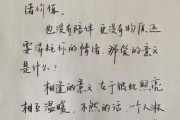 绪价值，
也没有陪伴 更没有物质，还
要消耗你的情绪，那爱的意义
是什么？
相逢的意义 在于彼此照亮
相互温暖，不然的话，一个人淋